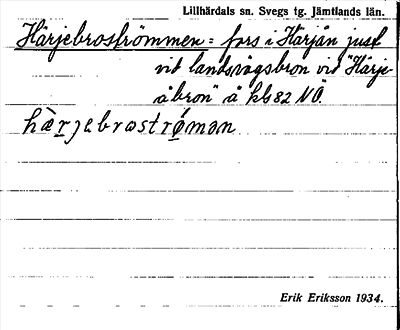 Lillhärdals sn. Svegs tg. Jämtlands län.
Härjebroströmmen = fors i Härjån just
vid landsvägsbron vid "Härje-
åbron" å kbl 82 NÖ.
hàrjebrostrǿmən
Erik Eriksson 1934.